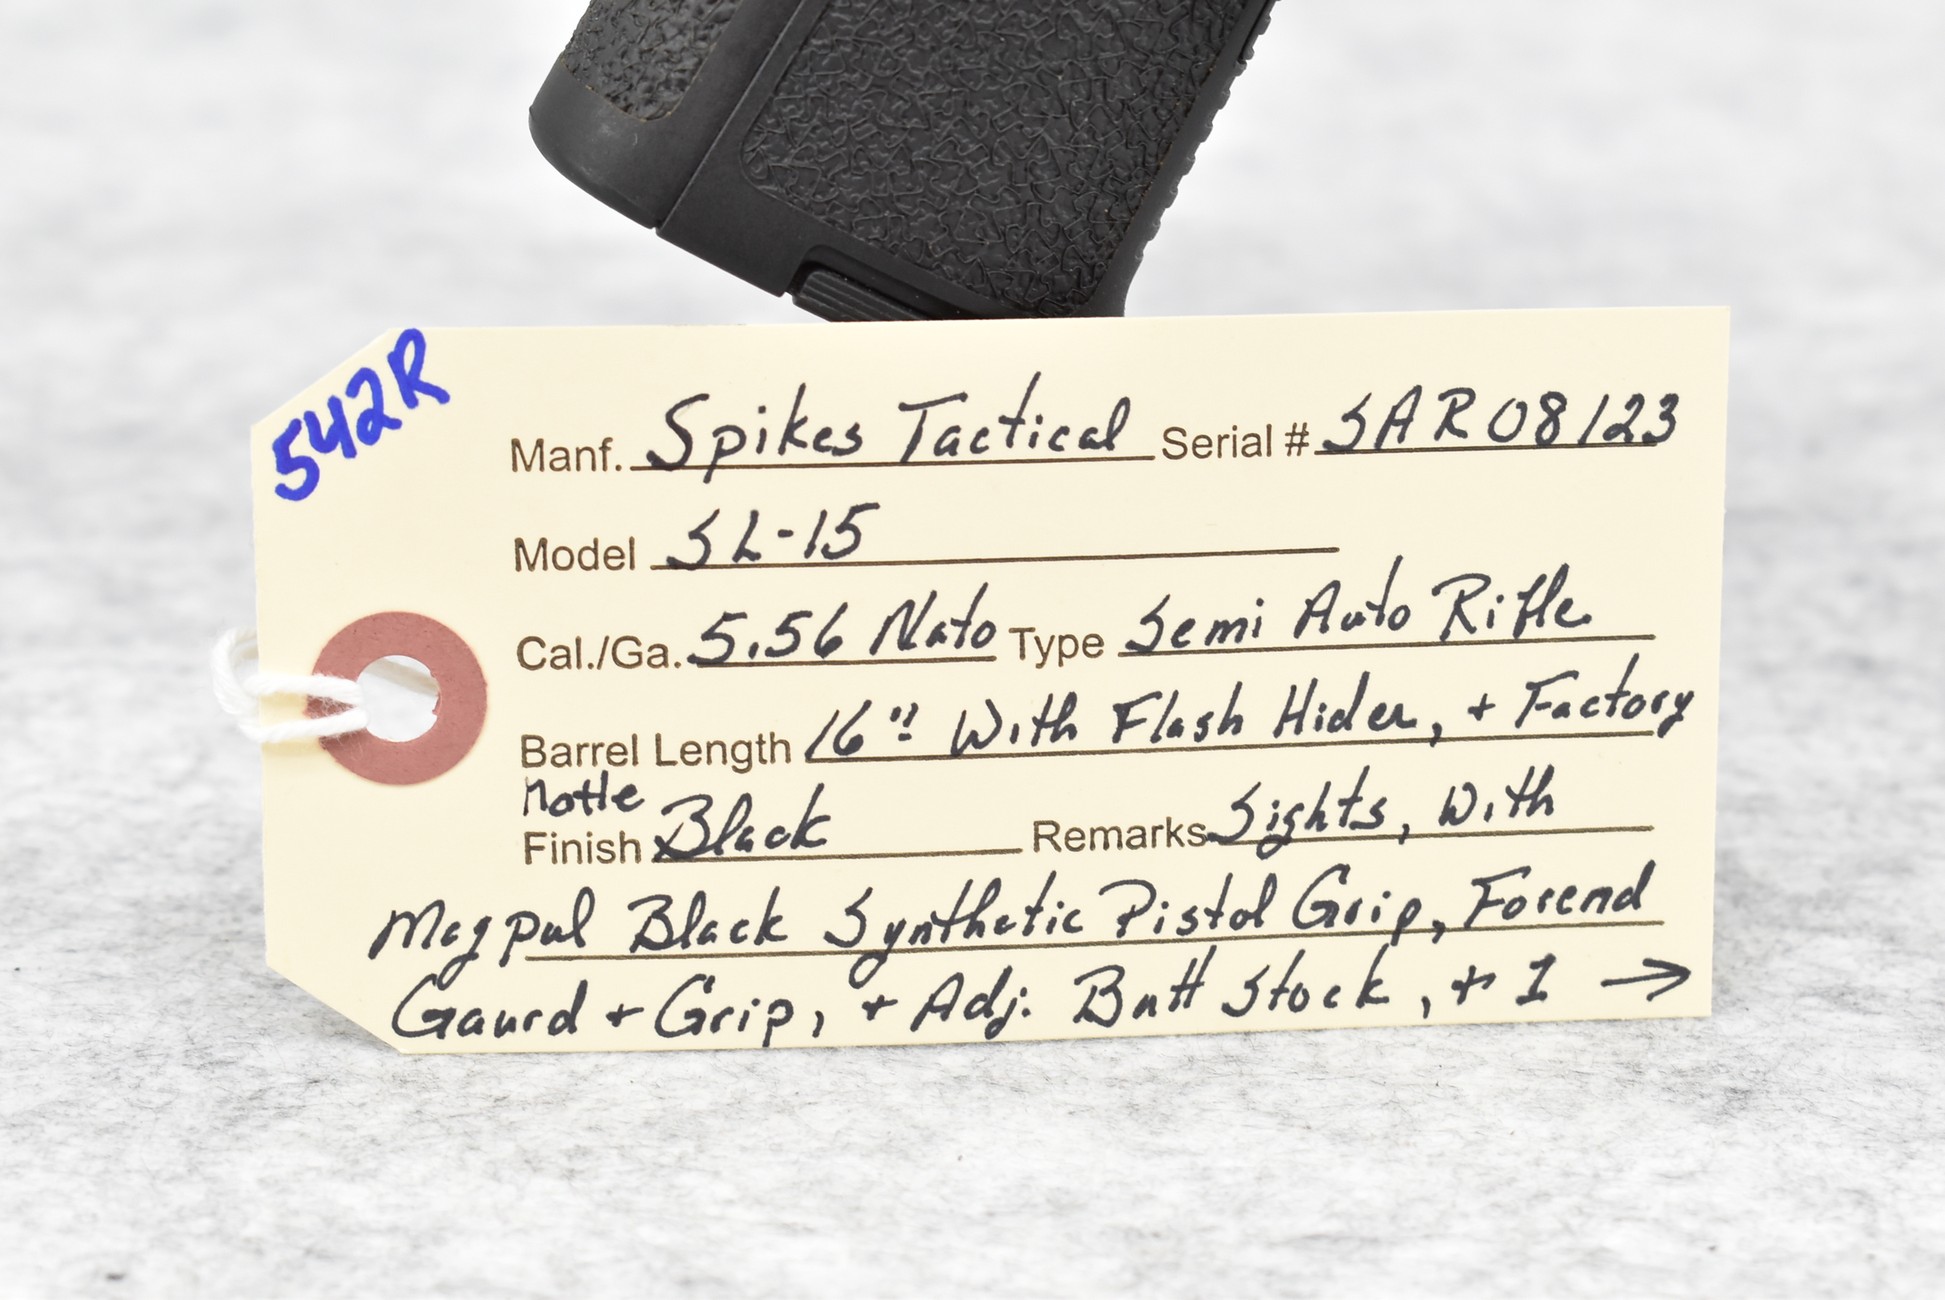 542R
Manf. Spikes Tactical Serial # SAR08123
Model SL-15
Cal./Ga. 5.56 Nato Type Semi Auto Rifle
Barrel Length 16" With Flash Hider, + Factory
Matte
Finish Black Remarks Sights, With
Magpul Black Synthetic Pistol Grip, Forend
Gaurd + Grip, + Adj. Butt Stock, + 1 →